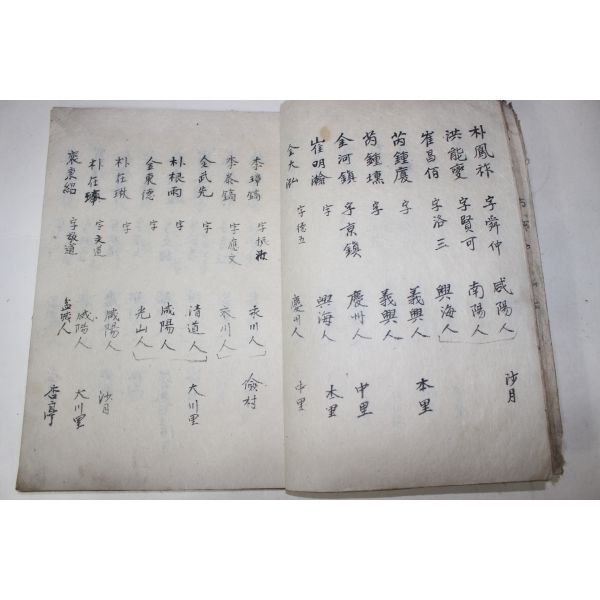 朴鳳祚 字舜仲 咸陽人 沙月
洪能燮 字賢可 南陽人
崔昌佰 字洛三 興海人
芮鍾慶 字 義興人 本里
芮鍾壎 字 義興人
金河鎮 字京鎮 慶州人 中里
崔明瀚 字 興海人 本里
金大泓 字德五 慶州人 中里
李璋鎬 字振汝 永川人 儉村
李泰鎬 字應文 永川人
金武先 字 清道人 大川里
朴根雨 字 咸陽人
金東德 字 光山人
朴在琡 字 咸陽人 沙月
朴在璨 字文道 咸陽人 大川里
裴東紹 字敬道 盆城人 杏亭